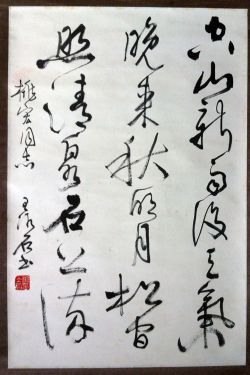 空山新雨後天氣
晚来秋明月松间
照清泉石上流
同志
王石书